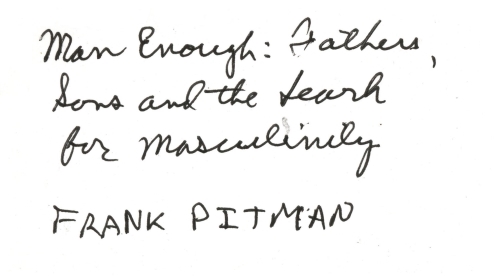 Man Enough: Fathers,
Sons and the Search
for Masculinity
FRANK PITMAN